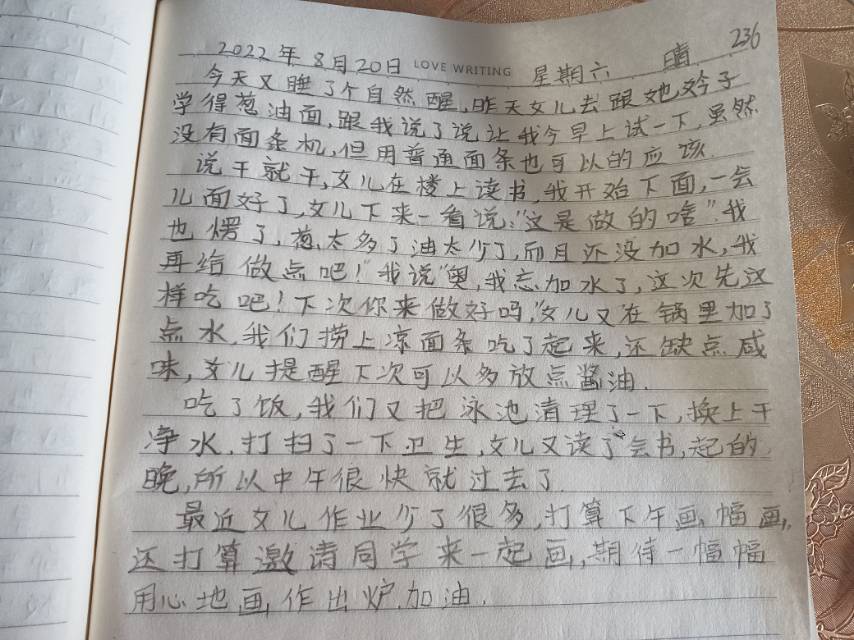 236
2022年8月20日 LOVE WRITING 星期六 晴
今天又睡了个自然醒,昨天女儿去跟她妗子
学得葱油面,跟我说了说让我今早上试一下,虽然
没有面条机,但用普通面条也可以的应该.
说干就干,女儿在楼上读书,我开始下面,一会
儿面好了,女儿下来一看说:"这是做的啥"我
也愣了,葱太多了油太少了,而且还没加水,我
再给做点吧!"我说"奥,我忘加水了,这次先这
样吃吧!下次你来做好吗,"女儿又在锅里加了
点水,我们捞上凉面条吃了起来,还缺点咸
味,女儿提醒下次可以多放点酱油.
吃了饭,我们又把泳池清理了一下,换上干
净水,打扫了一下卫生,女儿又读了会书,起的
晚,所以中午很快就过去了.
最近女儿作业少了很多,打算下午画幅画,
还打算邀请同学来一起画,期待一幅幅
用心地画作出炉.加油.